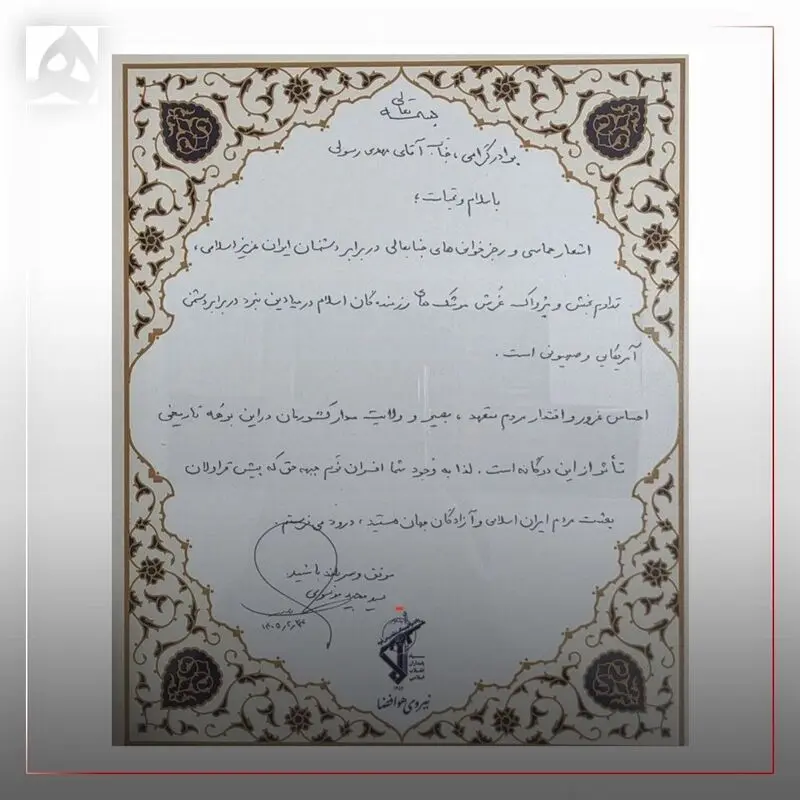 بسمه تعالی
برادر گرامی، جناب آقای مهدی رسولی
با سلام و تحیات؛
اشعار حماسی و رجزخوانی های جنابعالی در برابر دشمنان ایران عزیز اسلامی،
تداوم بخش و پژواک غُرش موشک های رزمندگان اسلام در میادین نبرد در برابر دشمن
آمریکایی و صهیونی است.
احساس غرور و اقتدار مردم متعهد، بصیر و ولایت مدار کشورمان در این بُرهه تاریخی
متأثر از این دوگانه است. لذا به وجود شما افسران نَرم جبهه حق که پیش قراولان
بعثت مردم ایران اسلامی و آزادگان جهان هستید، درود می فرستم.
موفق و سربلند باشید.
سید مجید موسوی
۱۴۰۵/۲/۲۴
سپاه
پاسداران
انقلاب
اسلامی
نیروی هوافضا